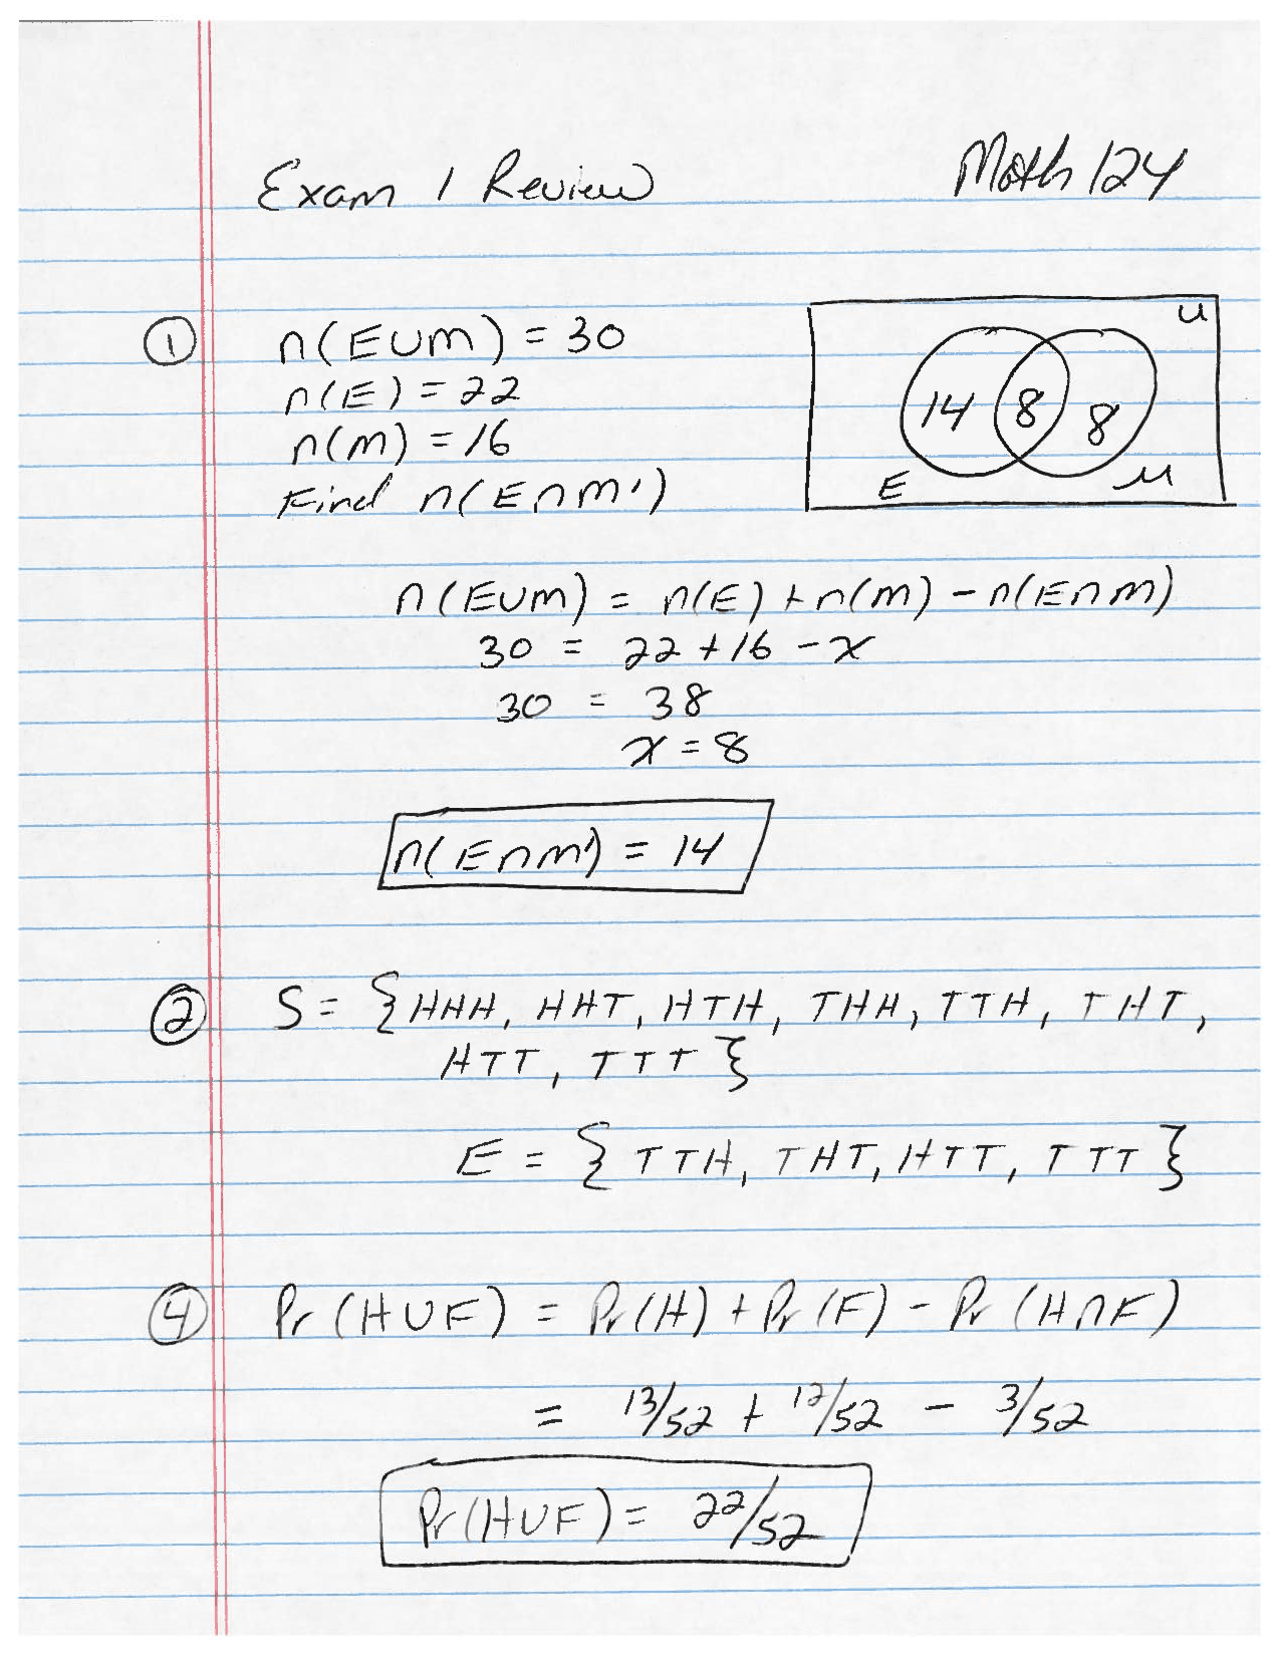 Exam 1 Review Math 124
① n(E∪M) = 30
n(E) = 22
n(M) = 16
Find n(E∩M')
U
14 8 8
E M
n(E∪M) = n(E) + n(M) - n(E∩M)
30 = 22 + 16 - x
30 = 38
x = 8
n(E∩M') = 14
② S = {HHH, HHT, HTH, THH, TTH, THT,
HTT, TTT}
E = {TTH, THT, HTT, TTT}
④ Pr(H∪F) = Pr(H) + Pr(F) - Pr(H∩F)
= 13/52 + 12/52 - 3/52
Pr(H∪F) = 22/52